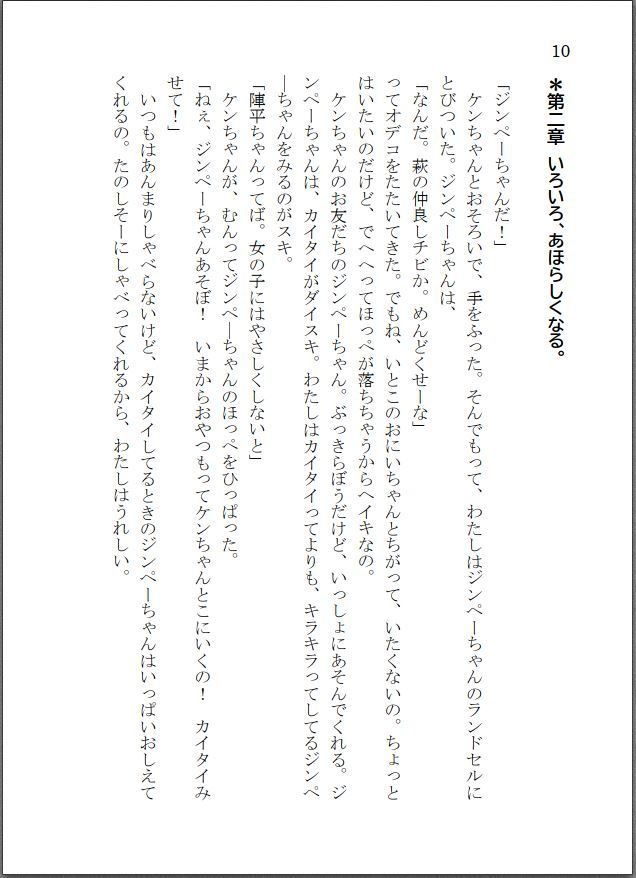 10
＊第二章 いろいろ、あほらしくなる。
「ジンペーちゃんだ！」
　ケンちゃんとおそろいで、手をふった。そんでもって、わたしはジンペーちゃんのランドセルに
とびついた。ジンペーちゃんは、
「なんだ。萩の仲良しチビか。めんどくせーな」
ってオデコをたたいてきた。でもね、いとこのおにいちゃんとちがって、いたくないの。ちょっと
はいたいのだけど、でへへってほっぺが落ちちゃうからヘイキなの。
　ケンちゃんのお友だちのジンペーちゃん。ぶっきらぼうだけど、いっしょにあそんでくれる。ジ
ンペーちゃんは、カイタイがダイスキ。わたしはカイタイってよりも、キラキラってしてるジンペ
ーちゃんをみるのがスキ。
「陣平ちゃんってば。女の子にはやさしくしないと」
　ケンちゃんが、むんってジンペーちゃんのほっぺをひっぱった。
「ねぇ、ジンペーちゃんあそぼ！　いまからおやつもってケンちゃんとこにいくの！　カイタイみ
せて！」
　いつもはあんまりしゃべらないけど、カイタイしてるときのジンペーちゃんはいっぱいおしえて
くれるの。たのしそーにしゃべってくれるから、わたしはうれしい。